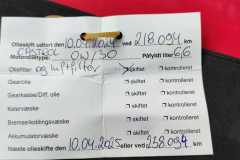 Oljeskift utført den 10.04.2024 ved 218.094 km
CASTROL
Motoroljetype: 0W/30 Påfylt liter 6,6
Oljefilter og luftfilter skiftet kontrollert
Girkasse skiftet kontrollert
Girkasse/Diff. olje skiftet kontrollert
Kjølervæske skiftet kontrollert
Bremse/kløtsjvæske skiftet kontrollert
Akkumulatorvæske skiftet kontrollert
Neste oljeskifte den 10.04.2025 eller ved 238.094 km